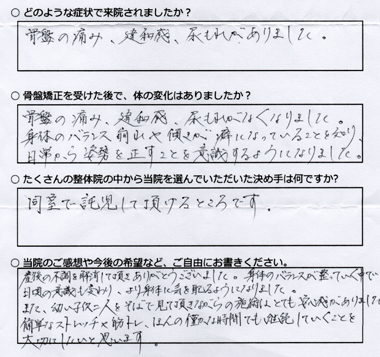 ○ どのような症状で来院されましたか？
骨盤の痛み、違和感、尿もれがありました。
○ 骨盤矯正を受けた後で、体の変化はありましたか？
骨盤の痛み、違和感、尿もれがなくなりました。
身体のバランス 荷重や傾きが癖になっていることを知り、
日常から姿勢を正すことを意識するようになりました。
○ たくさんの整体院の中から当院を選んでいただいた決め手は何ですか？
同室で託児して頂けるところです。
○ 当院のご感想や今後の希望など、ご自由にお書きください。
産後の不調を解消して頂きありがとうございました。身体のバランスが整っていく中で
日頃の意識も変わり、より身体に気を配るようになりました。
また、幼い子供二人をそばで見て頂きながらの施術はとても安心感がありました
簡単なストレッチや筋トレ、ほんの僅かな時間でも継続していくことを
大切にしたいと思います。